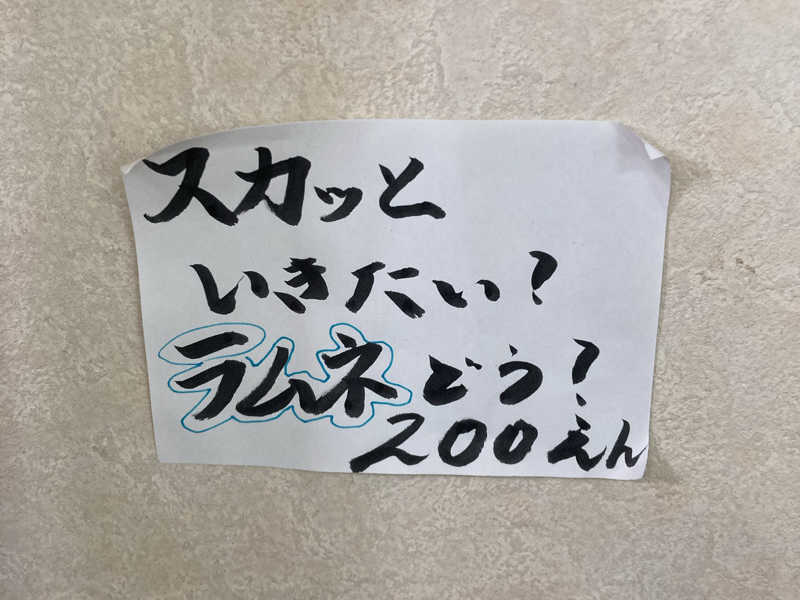 スカッと
いきたい?
ラムネどう?
200えん